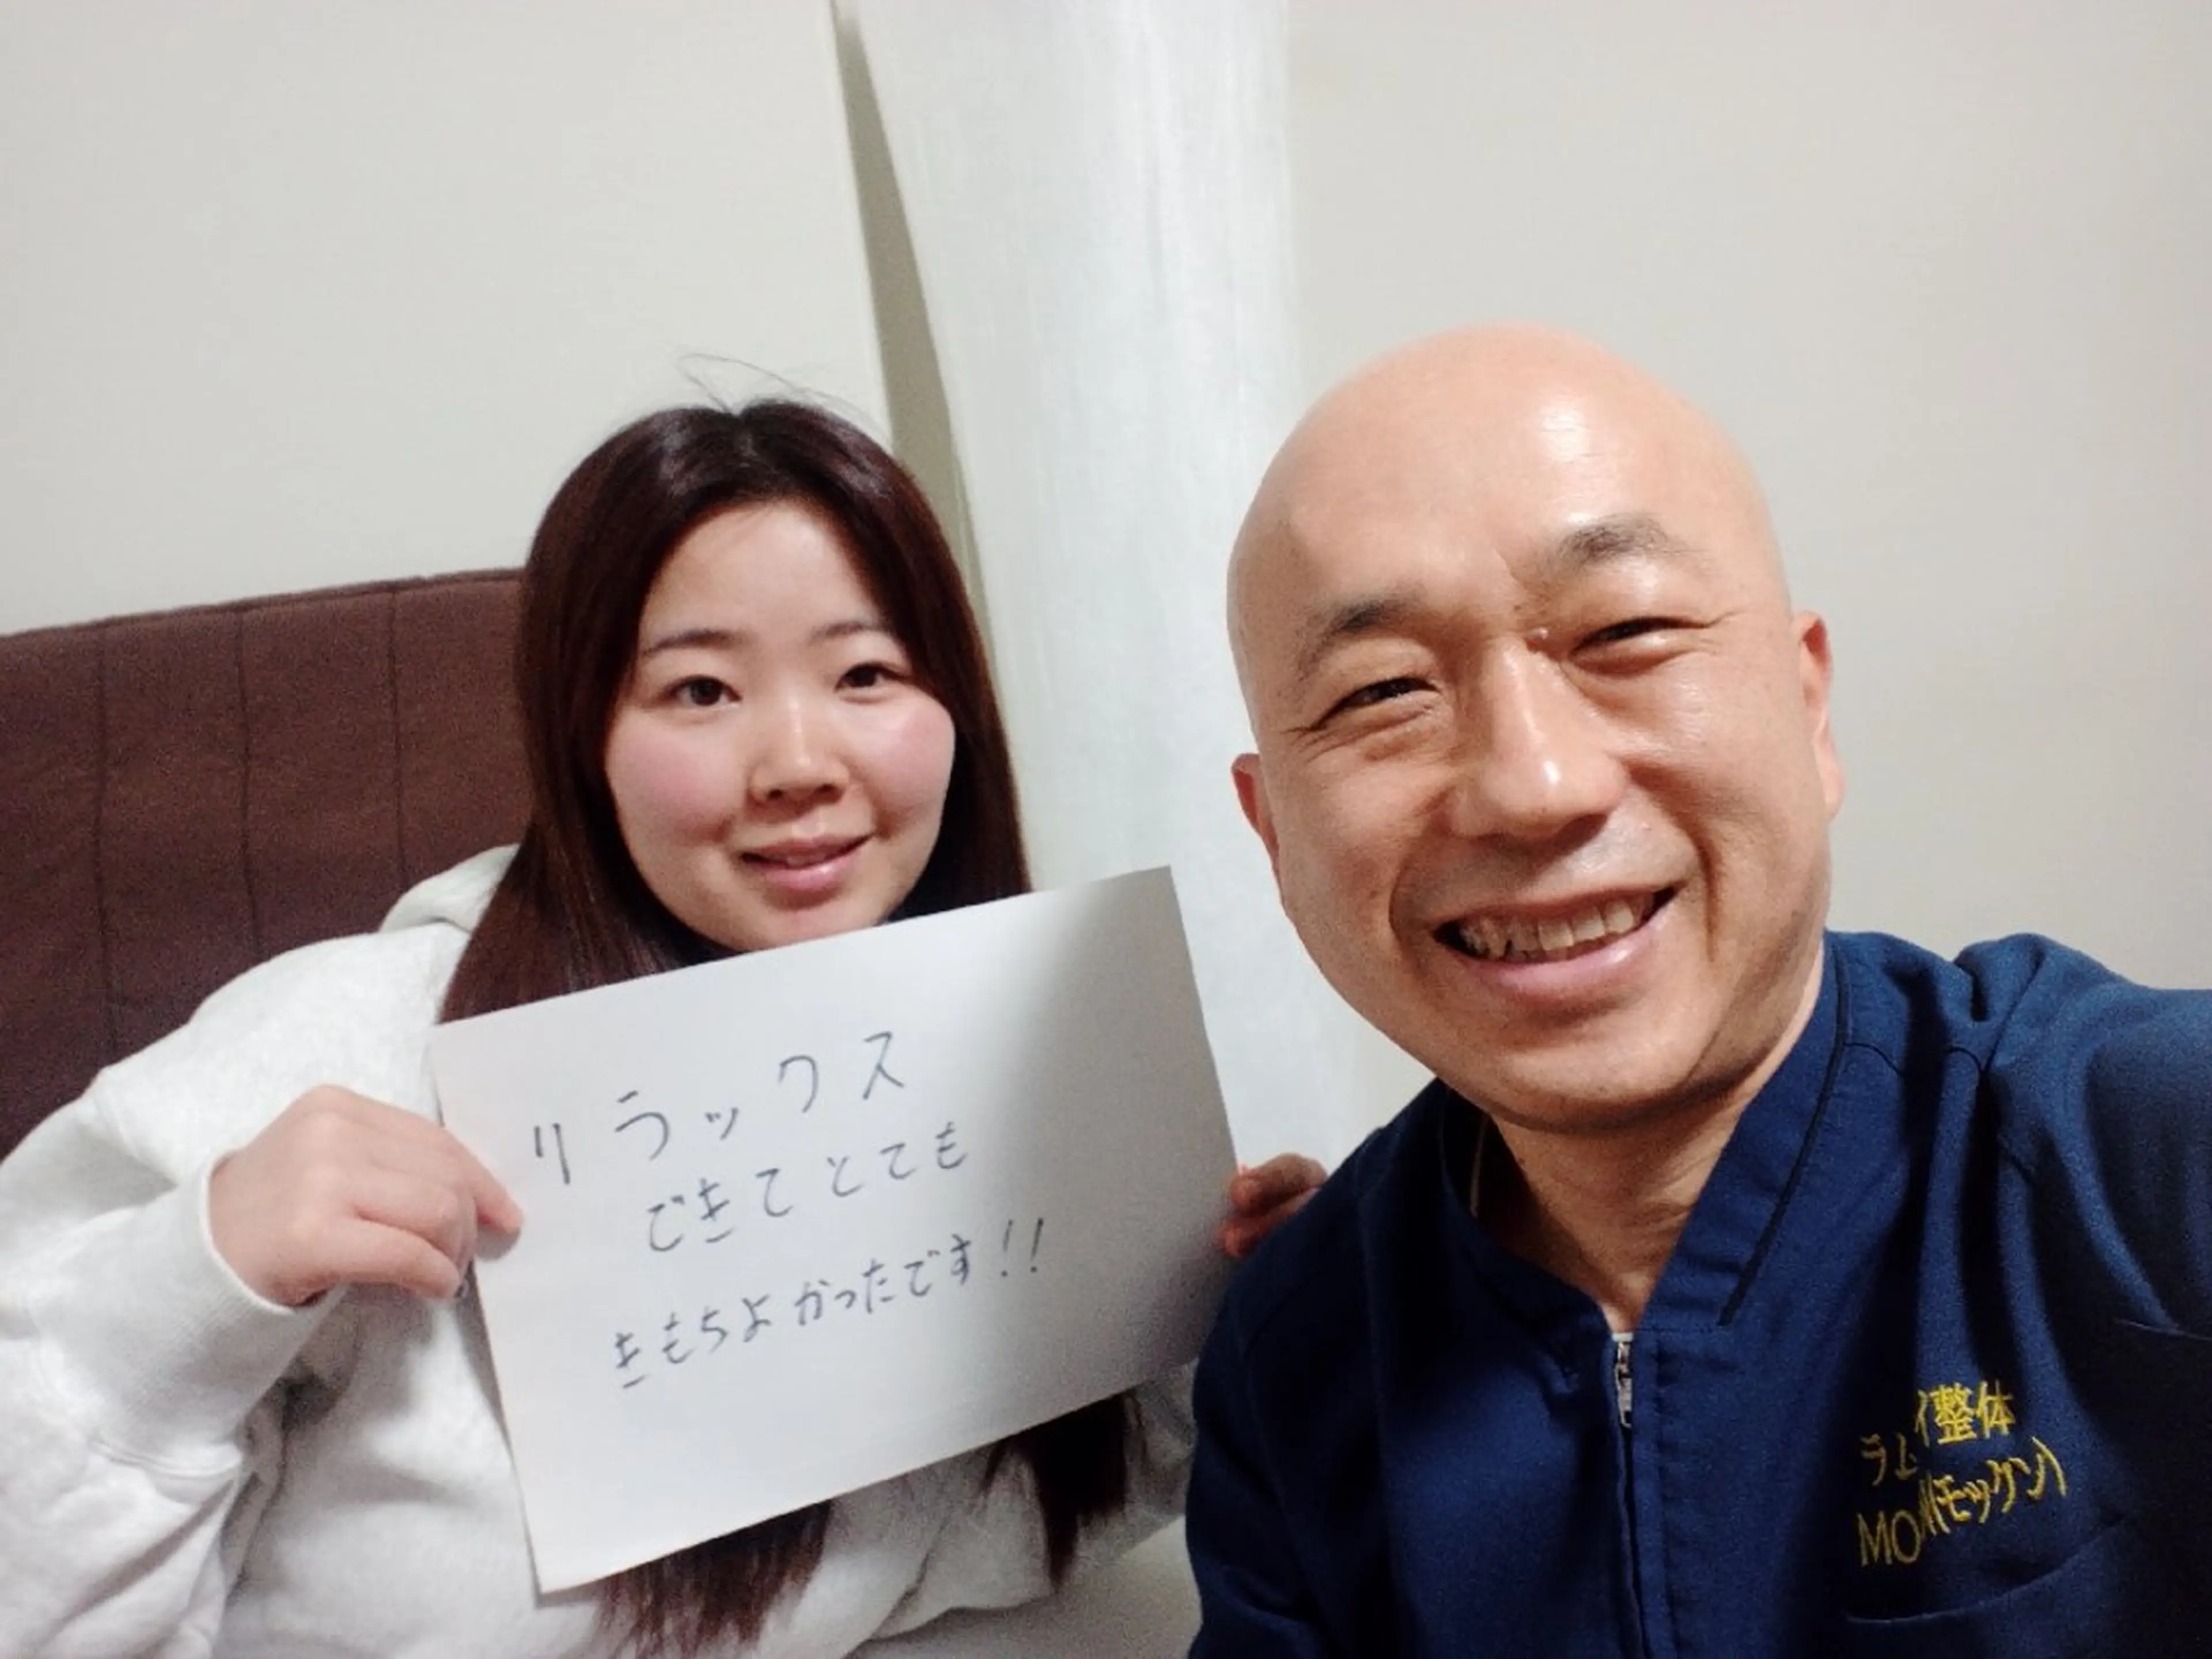 リラックス
できてとても
きもちよかったです!!
整体
(モックン)